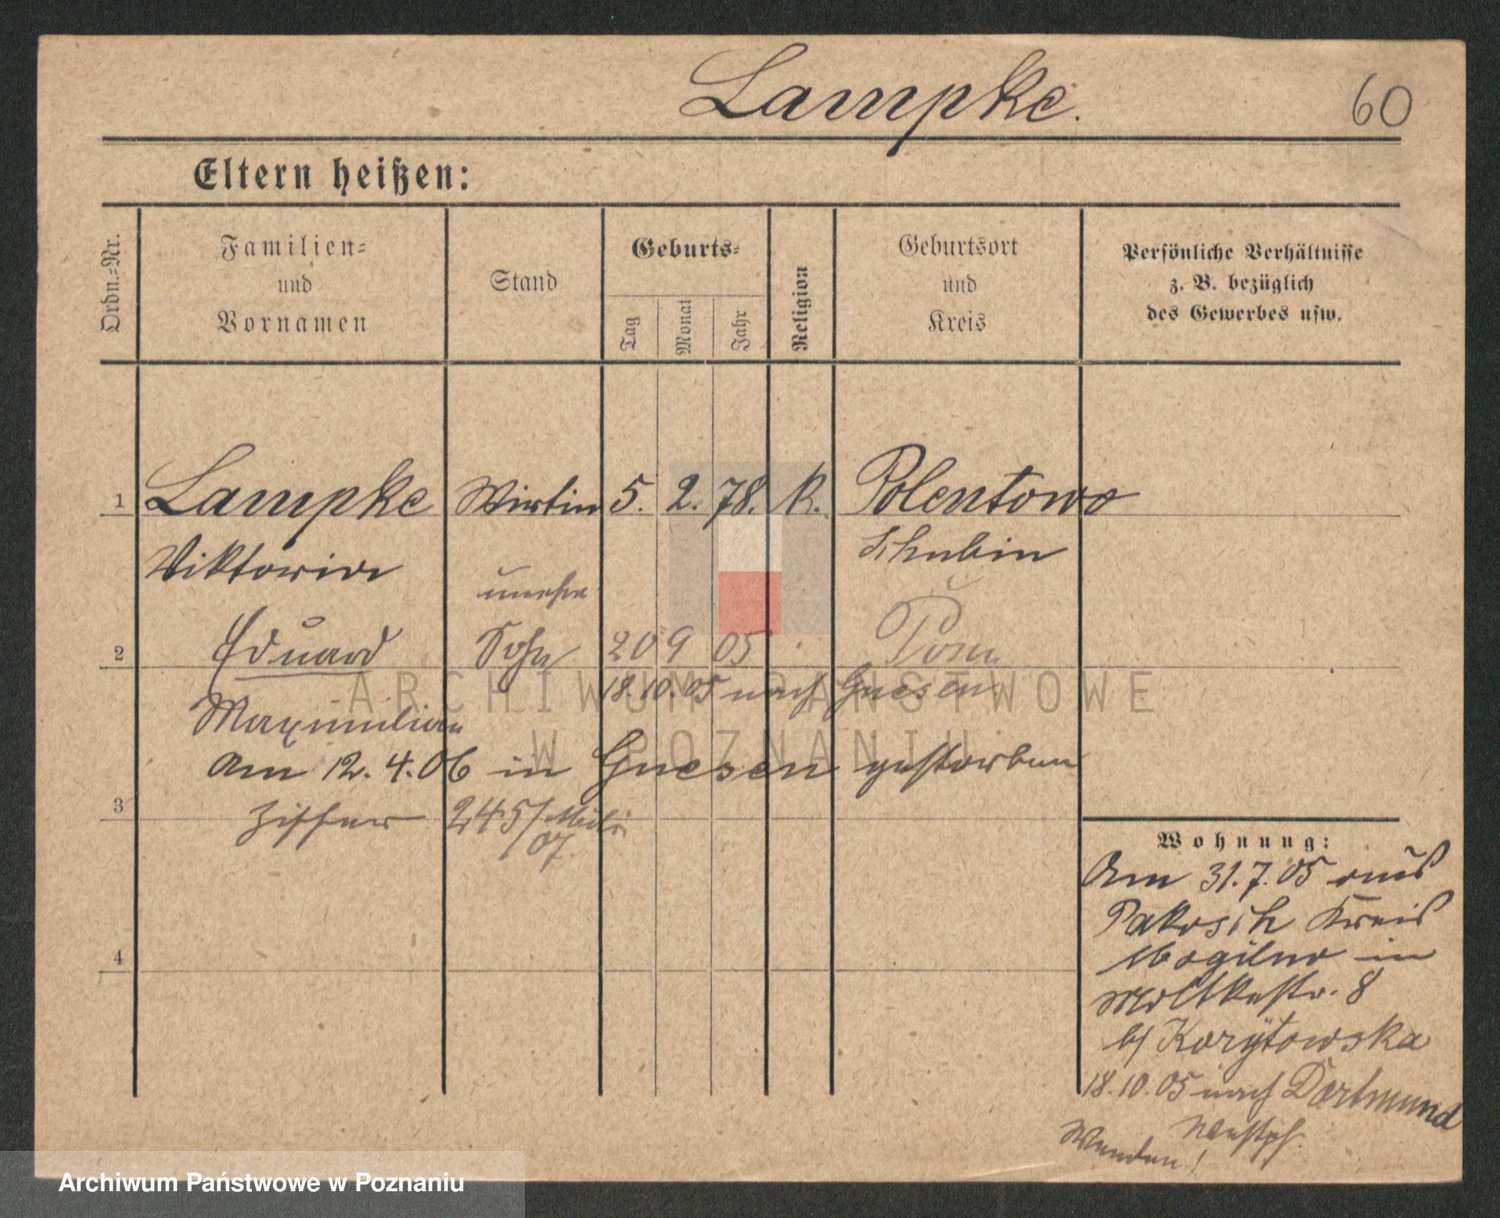 Lampke. 60
Eltern heißen:
Ordn.=Nr.
Familien=
und
Vornamen
Stand
Geburts=
Tag
Monat
Jahr
Religion
Geburtsort
und
Kreis
Persönliche Verhältnisse
z. B. bezüglich
des Gewerbes usw.
1 Lampke Wirtin 5. 2. 78. K. Polentowo
Viktoria Schubin
unehe
2 Eduard Sohn 20 9 05 Posen
18.10.05 nach Gnesen
Maximilian
am 12.4.06 in Gnesen gestorben
3 245/
07
Wohnung:
Am 31.7.05 aus
Pakosch Kreis
Mogilno in
Moltkestr. 8
b/ Korytowska
4
18.10.05 nach Dortmund
Westph.
Wenden!
ARCHIWUM PAŃSTWOWE
W POZNANIU
Archiwum Państwowe w Poznaniu